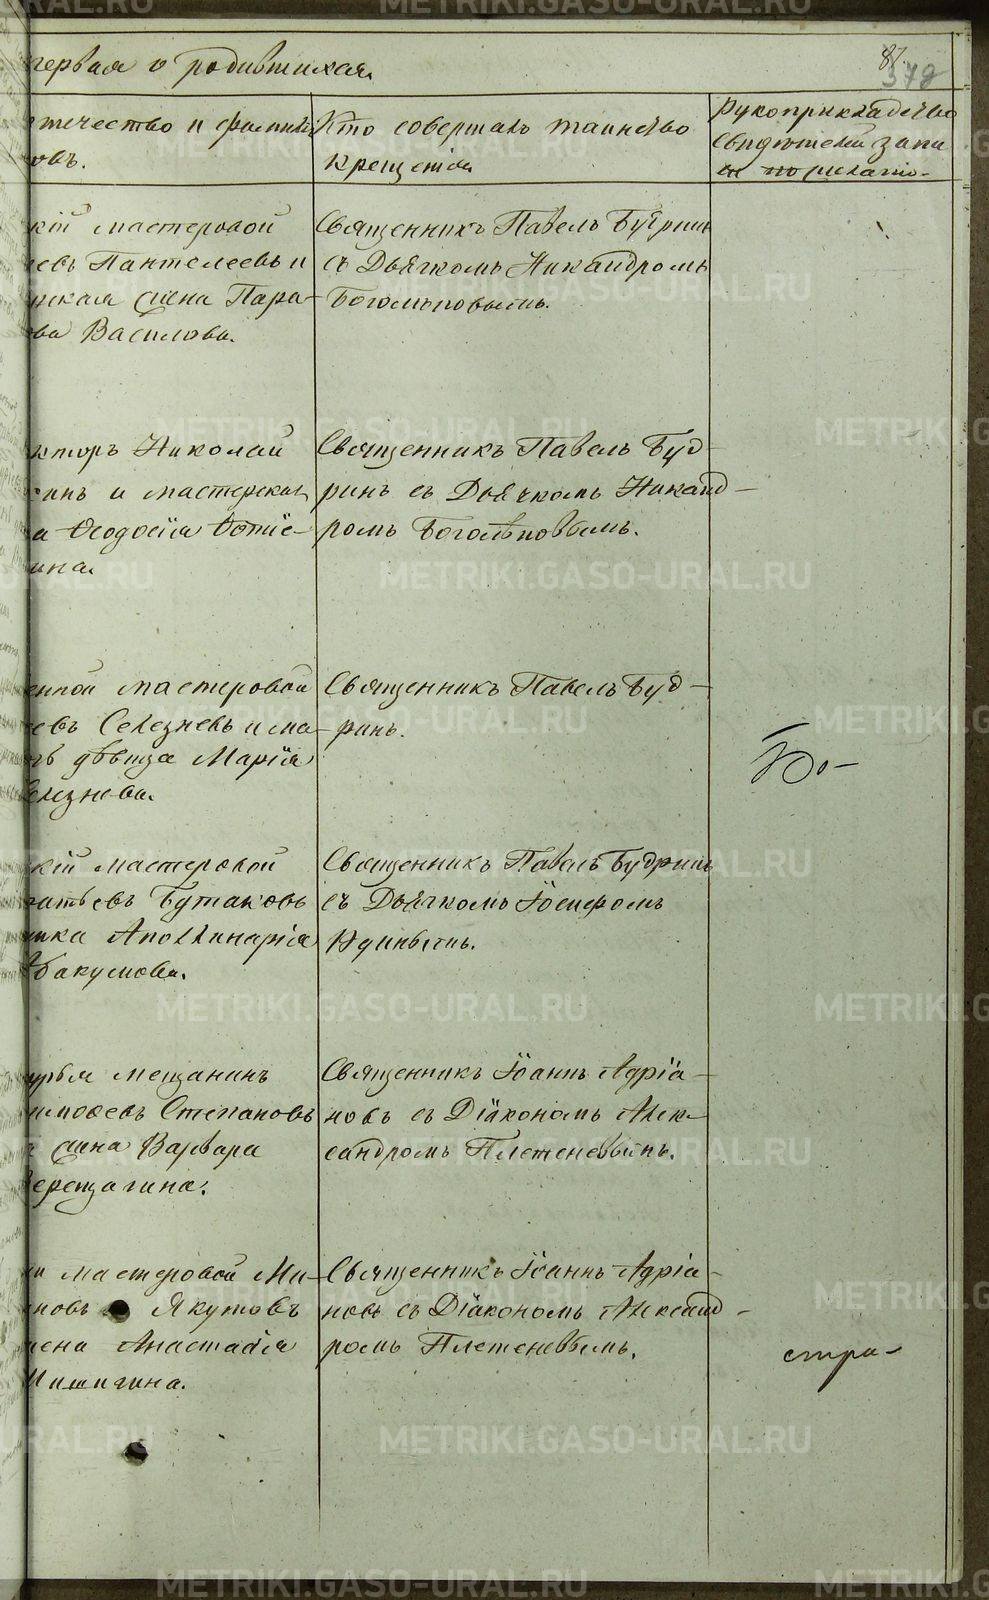 первая о родившихся.
87.
378
отчество и фамилія
Кто совершалъ таинство
крещенія
Рукоприкладство
свидѣтелей запи
си по желанію.
кій мастеровой
евъ Пантелеевъ и
ская жена Пара-
ва Василова.
Священникъ Павелъ Будринъ
съ Дьячкомъ Никандромъ
Боголѣповымъ.
кторъ Николай
инъ и мастерская
а Ѳеодосія
ина.
Священникъ Павелъ Буд-
ринъ съ Дьячкомъ Никанд-
ромъ Боголѣповымъ.
енной мастеровой
евъ Селезневъ и ма-
дѣвица Марія
елезнева.
Священникъ Павелъ Буд-
ринъ.
Бо-
кій мастеровой
атьевъ Бутаковъ
Аполлинарія
Абакумова.
Священникъ Павелъ Будринъ
съ Дьячкомъ Іосифомъ
Юдинымъ.
мещанинъ
имоѳеевъ Степановъ
жена Варвара
Верещагина.
Священникъ Іоаннъ Адріа-
новъ съ Діакономъ Алек-
сандромъ Плетеневымъ.
мастеровой Ми-
новъ Якутовъ
жена Анастасія
Шишигина.
Священникъ Іоаннъ Адріа-
новъ съ Діакономъ Александ-
ромъ Плетеневымъ.
стра-
METRIKI.GASO-URAL.RU